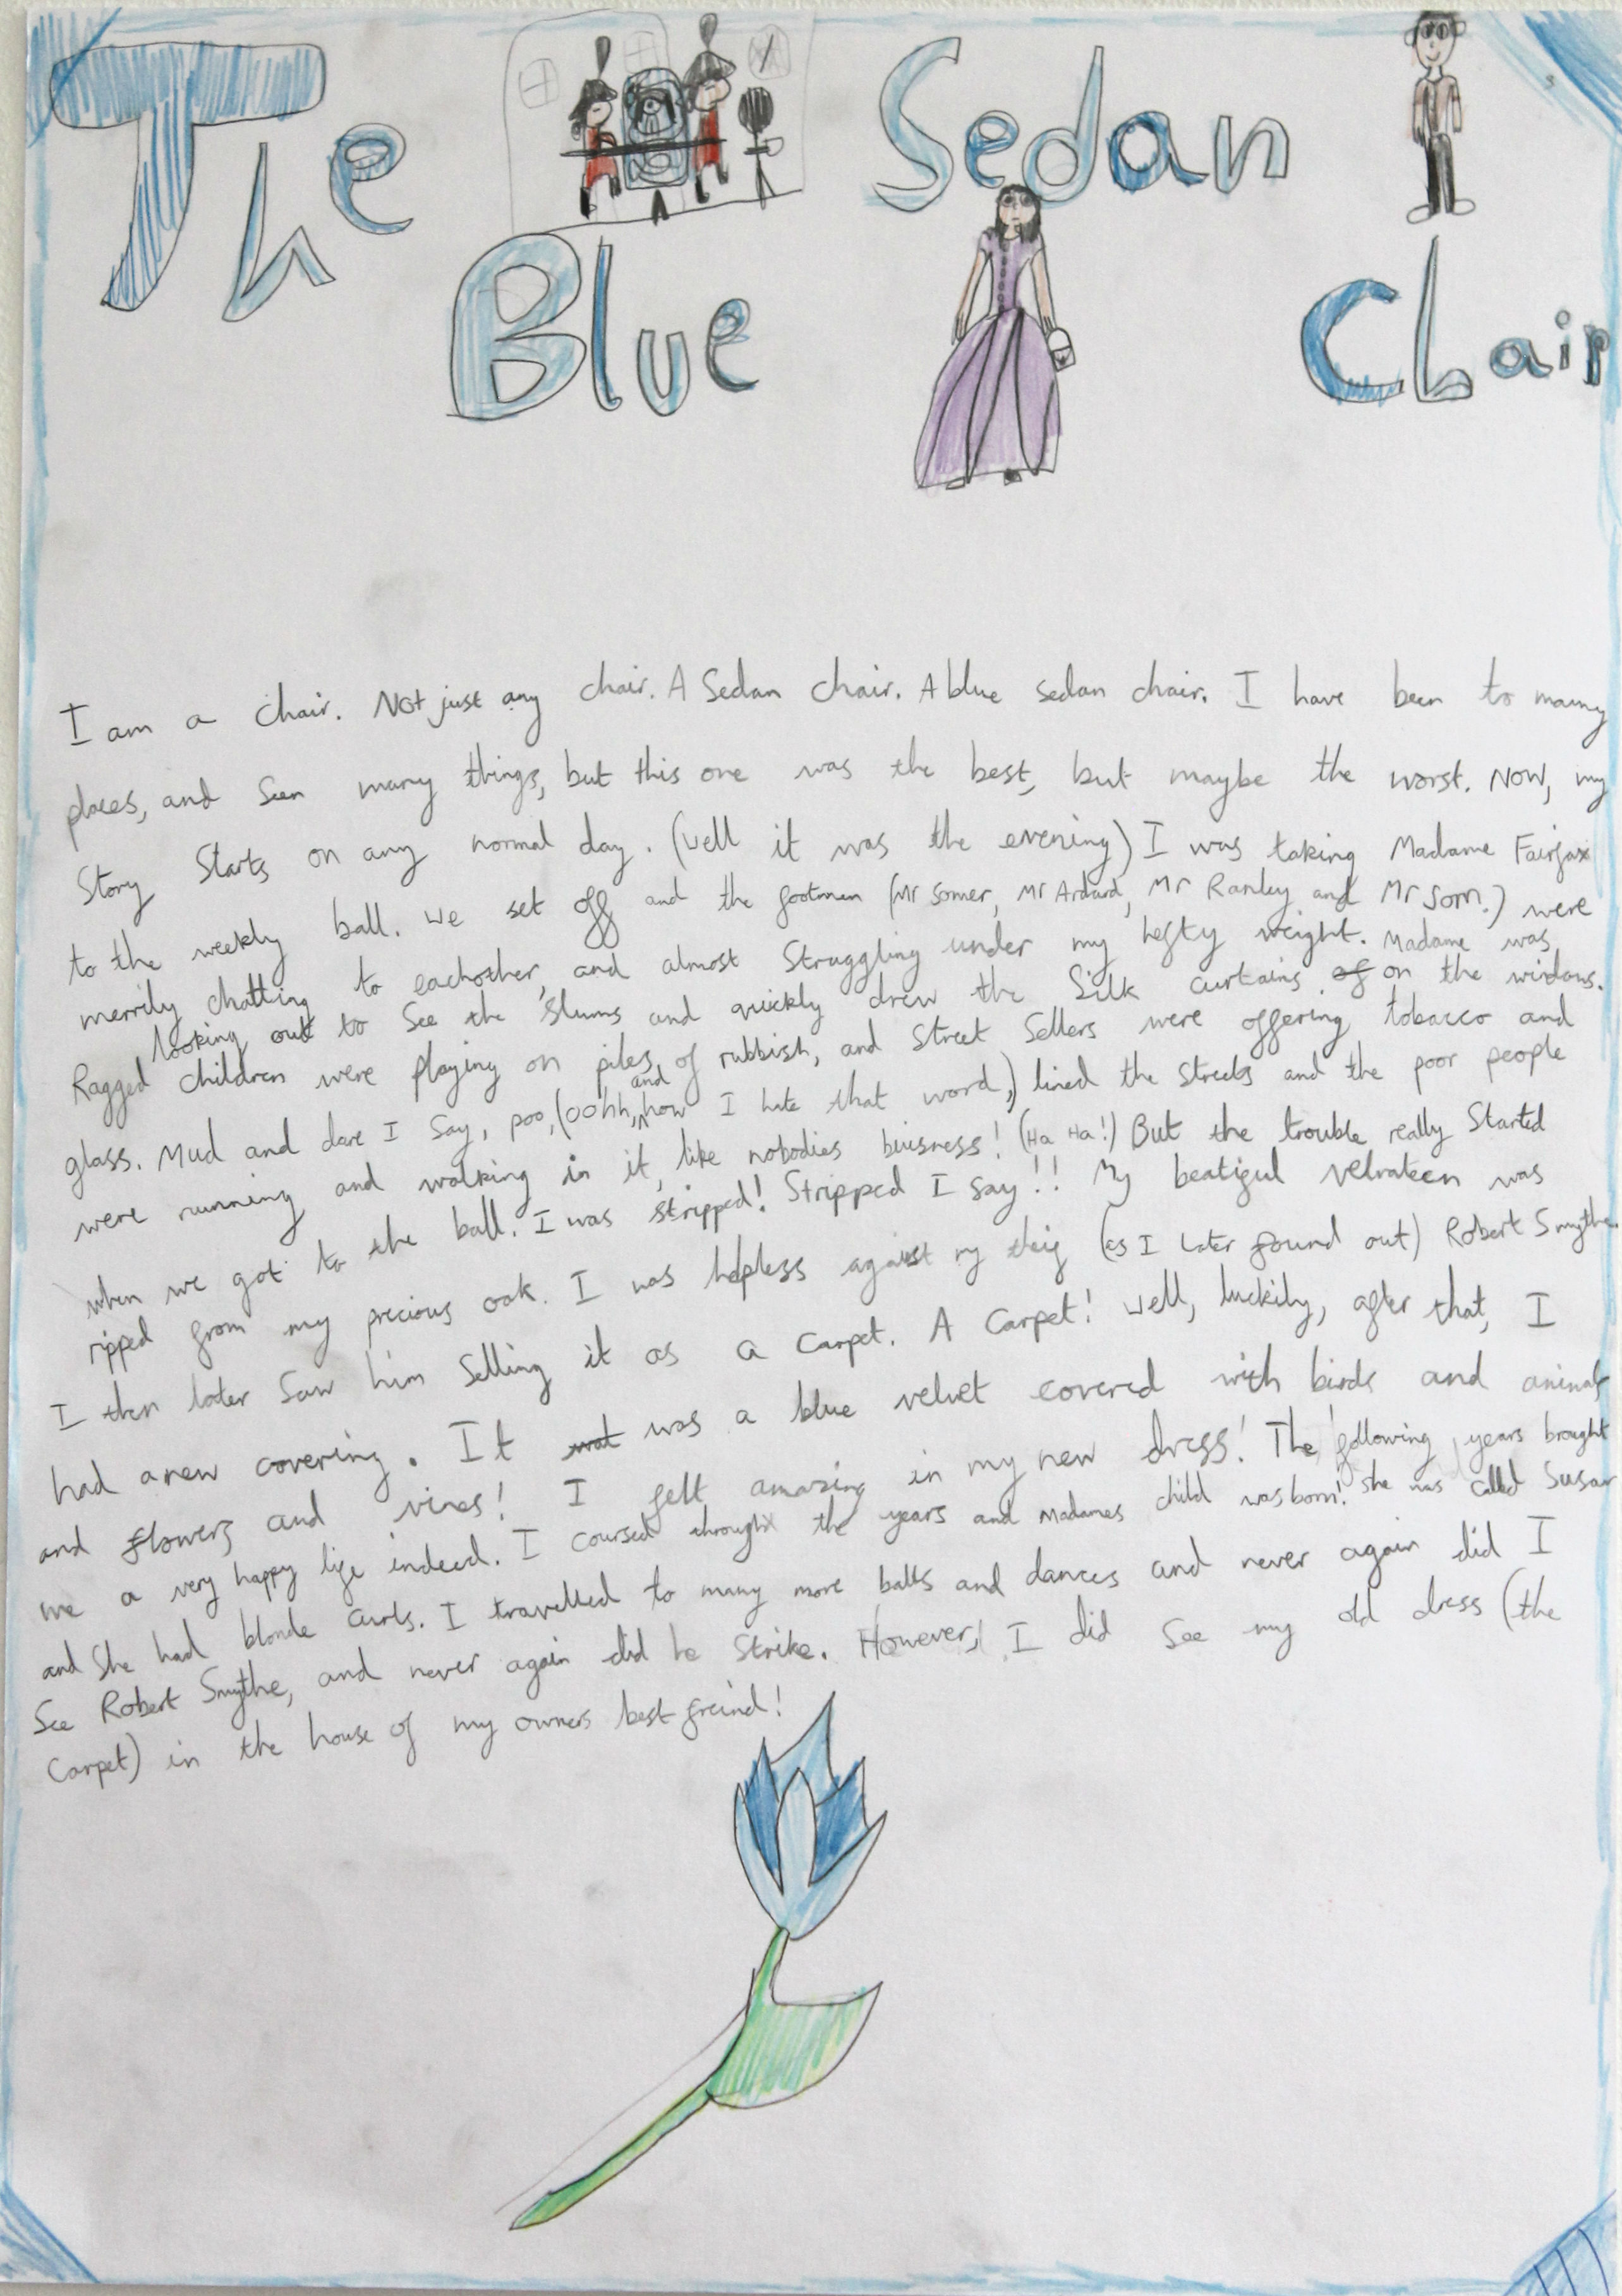 The Sedan
Blue Chair
I am a chair. Not just any chair. A Sedan chair. A blue sedan chair. I have been to many
places, and seen many things, but this one was the best, but maybe the worst. Now, my
Story Starts on any normal day. (well it was the evening) I was taking Madame Fairfax
to the weekly ball. we set off and the footmen (Mr Somer, Mr Ardard, Mr Ranley and Mr Sorn.) were
merrily chatting to eachother, and almost Struggling under my hefty weight. Madame was
looking out to See the slums and quickly drew the Silk curtains of on the windows.
Ragged children were playing on piles of rubbish, and Street Sellers were offering tobacco and
glass. Mud and dare I Say, poo, (oohh, and how I hate that word,) lined the Streets and the poor people
were running and walking in it, like nobodies buisness! (Ha Ha!) But the trouble really Started
when we got to the ball. I was stripped! Stripped I say!! My beatiful velvateen was
ripped from my precious oak. I was helpless against my theif (as I later found out) Robert Smythe.
I then later Saw him Selling it as a Carpet. A Carpet! Well, luckily, after that, I
had a new covering. It wat was a blue velvet covered with birds and animals
and flowers and vines! I felt amazing in my new dress! The following years brought
me a very happy life indeed. I coursed through the years and Madames child was born! She was called Susan
and She had blonde curls. I travelled to many more balls and dances and never again did I
See Robert Smythe, and never again did he Strike. However, I did See my old dress (the
Carpet) in the house of my owners best freind!